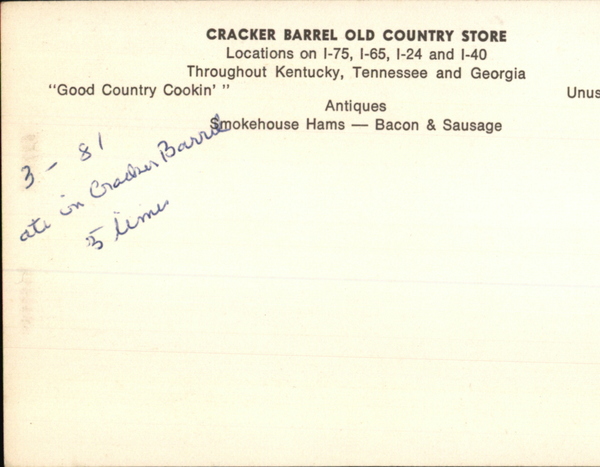 CRACKER BARREL OLD COUNTRY STORE
Locations on I-75, I-65, I-24 and I-40
Throughout Kentucky, Tennessee and Georgia
"Good Country Cookin' " Unus
Antiques
Smokehouse Hams — Bacon & Sausage
3 - 81
ate in Cracker Barrel
5 times